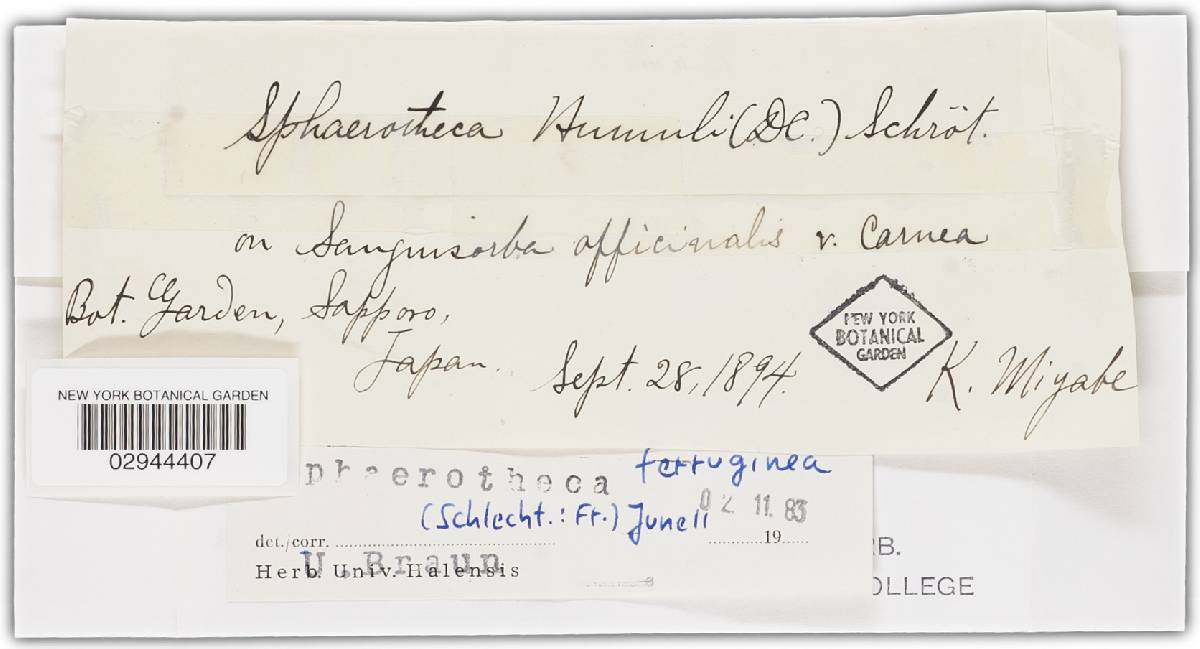 Sphaerotheca Humuli (DC.) Schröt.
on Sanguisorba officinalis v. Carnea
Bot. Garden, Sapporo,
Japan.
Sept. 28, 1894.
NEW YORK
BOTANICAL
GARDEN
K. Miyabe
NEW YORK BOTANICAL GARDEN
02944407
phaerotheca ferruginea
(Schlecht.: Fr.) Junell
02 11. 83
det./corr. 19
U. Braun
Herb. Univ. Halensis
RB.
OLLEGE